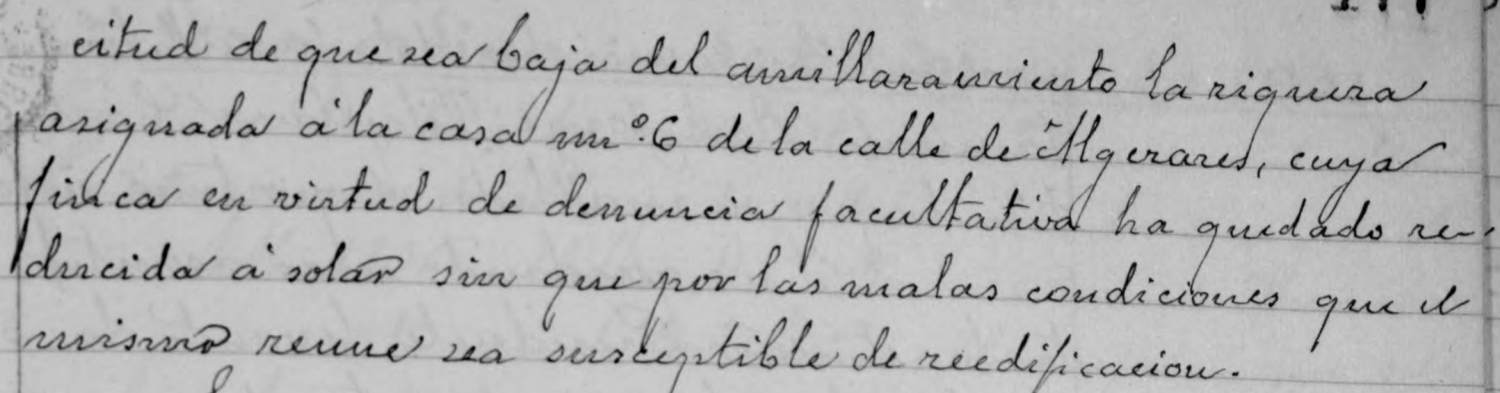 citud de que sea baja del amillaramiento la riqueza
asignada á la casa nº. 6 de la calle de Algezares, cuya
finca en virtud de denuncia facultativa ha quedado re-
ducida á solar sin que por las malas condiciones que el
mismo reune sea susceptible de reedificacion.